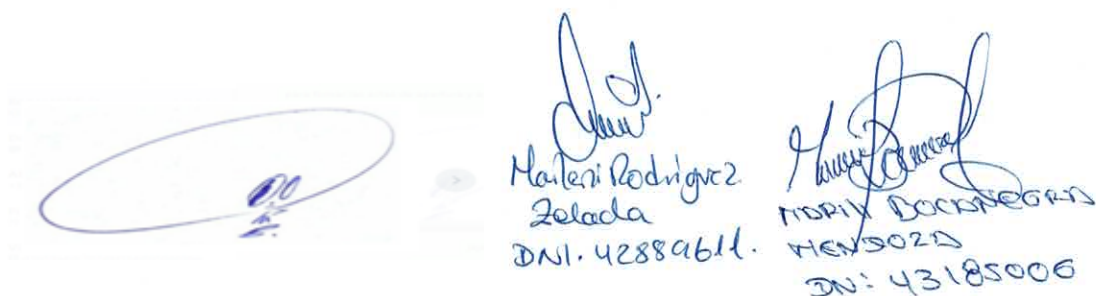 Maileni Rodriguez
Zelada
DNI. 42889611.
MARIA BOCANEGRA
MENDOZA
DNI: 43185006